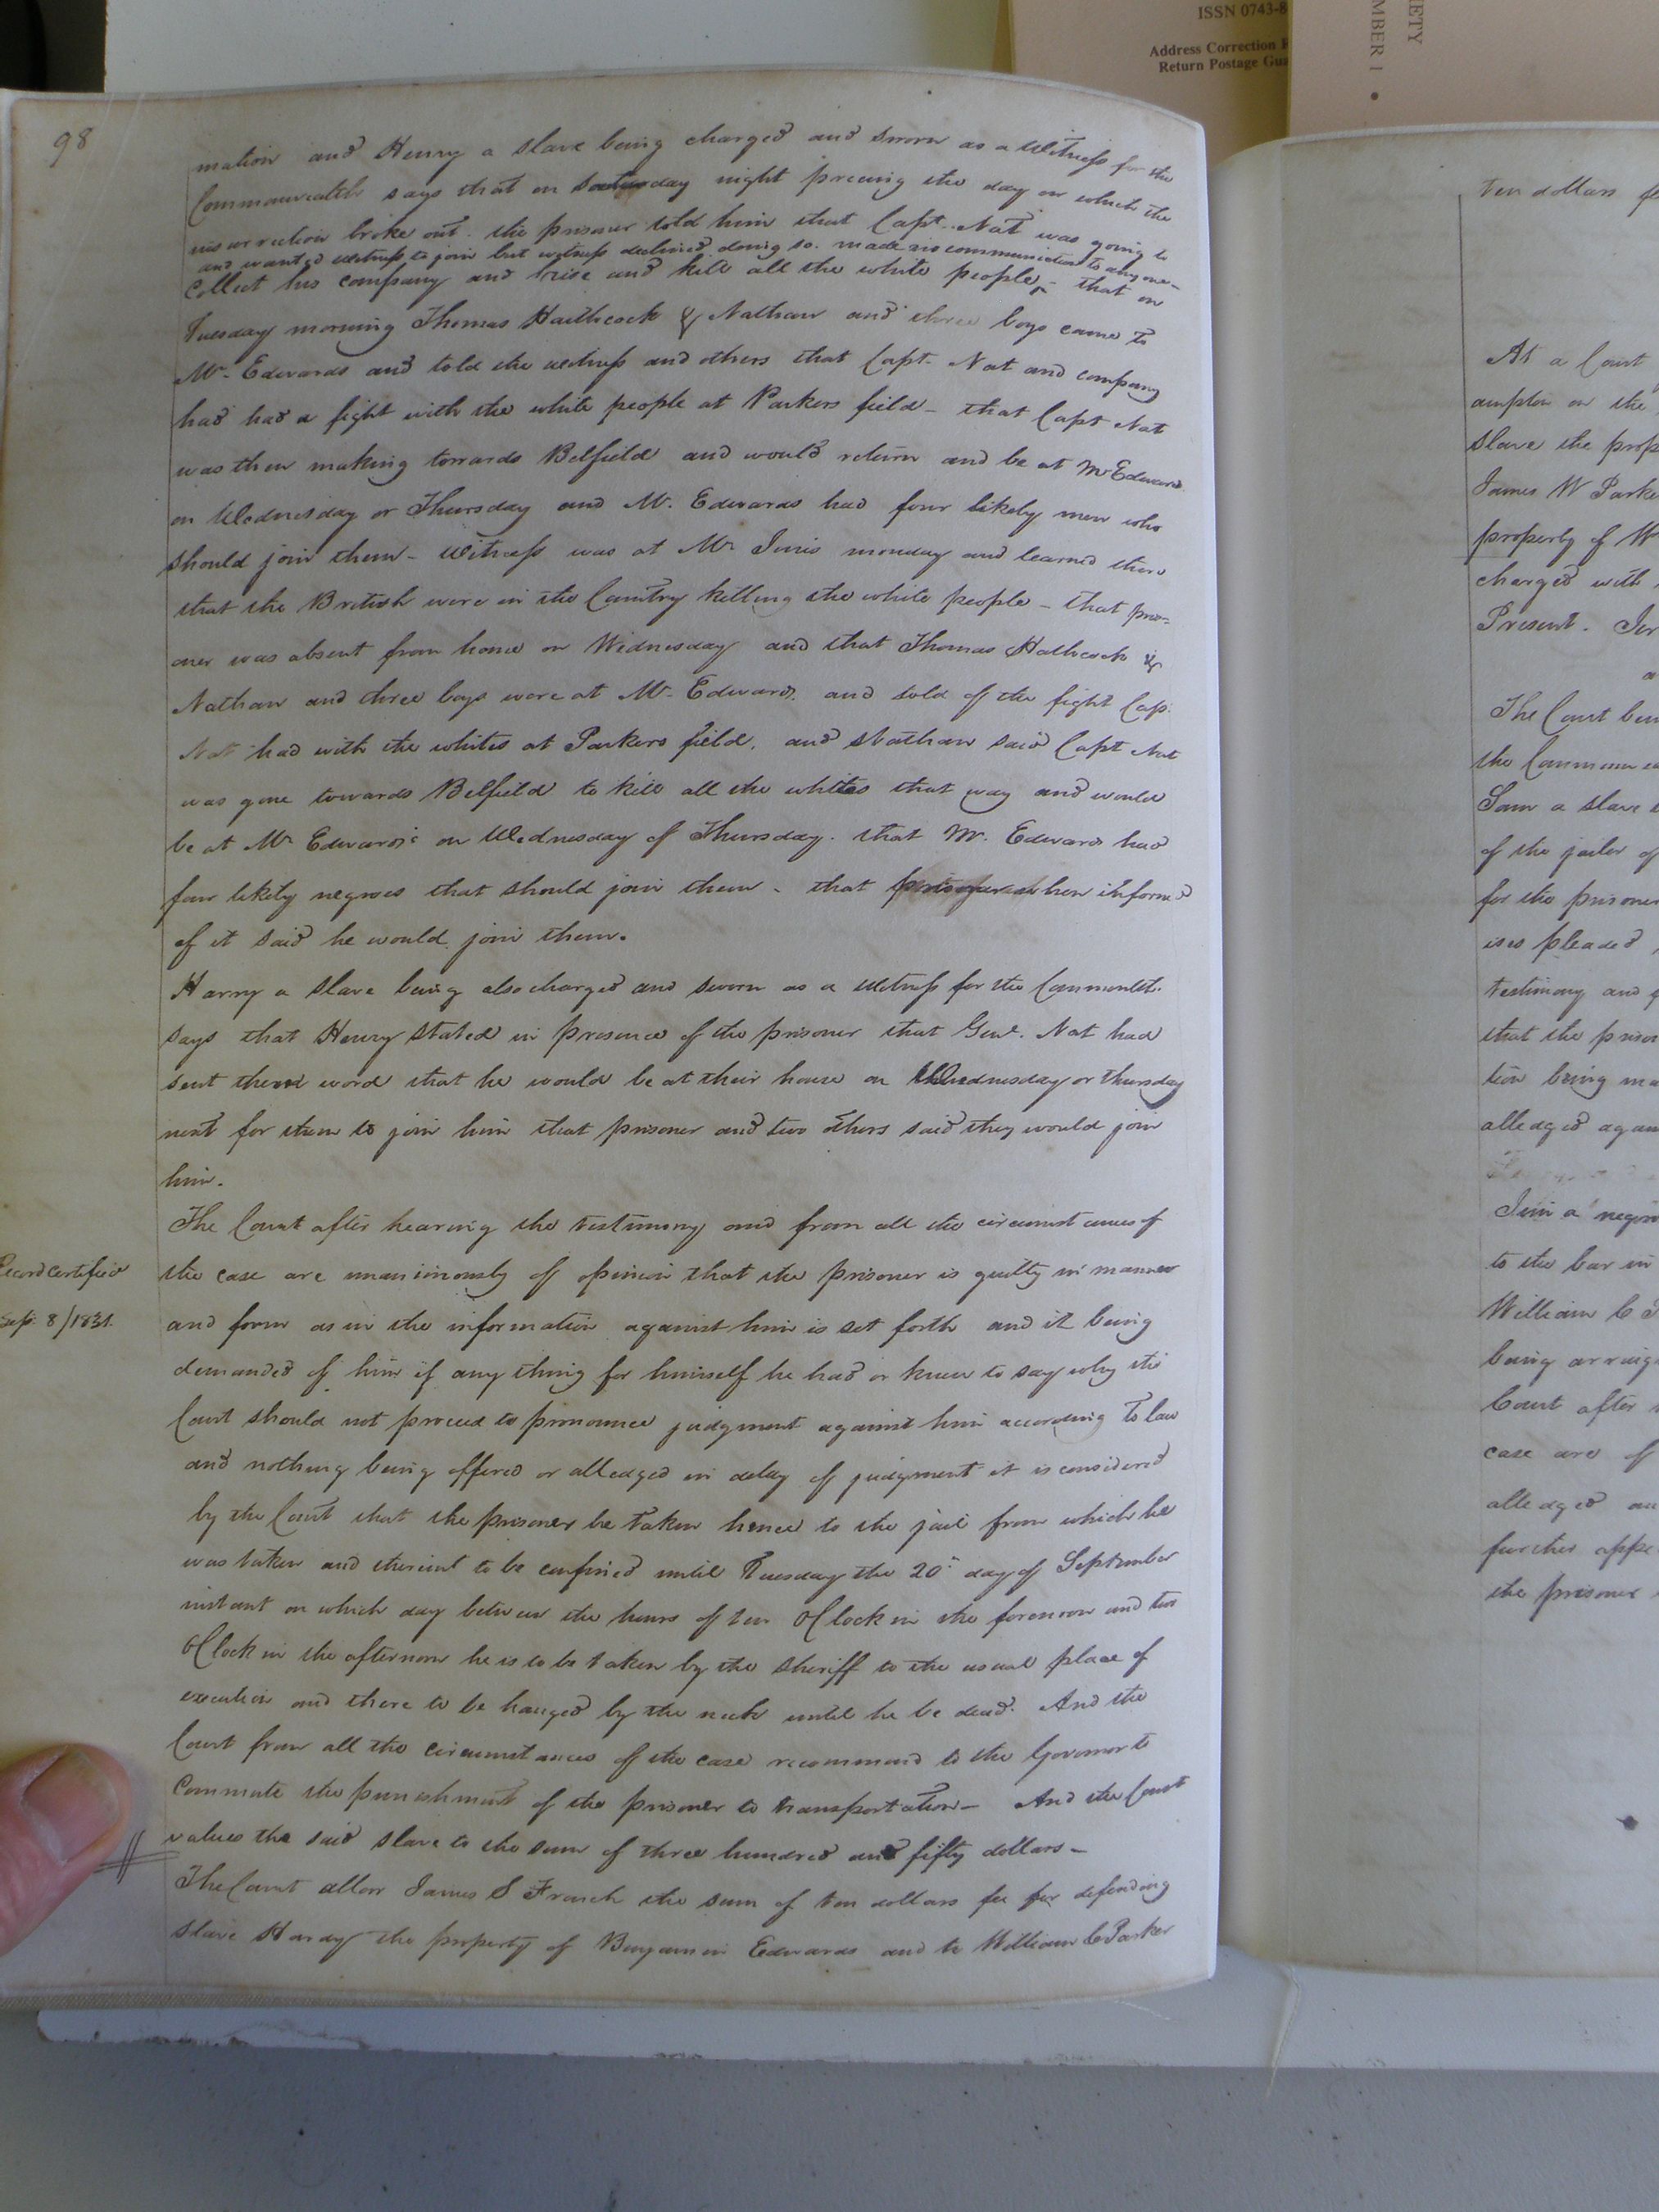 ISSN 0743-8
Address Correction
Return Postage Gua
IETY
MBER 1 •
98
mation and Henry a slave being charged and sworn as a Witness for the
Commonwealth says that on Saturday night preceing the day on which the
insurrection broke out. the prisoner told him that Capt. Nat was going to
and wanted witness to join but witness declined doing so. made no communication to any one—
Collect his company and rise and kill all the white people, that on
Tuesday morning Thomas Haithcock & Nathan and three boys came to
Mr. Edwards and told the witness and others that Capt. Nat and company
had had a fight with the white people at Parkers field – that Capt Nat
was then making towards Belfield and would return and be at Mr Edwards
on Wednesday or Thursday and Mr. Edwards had four likely men who
should join them – Witness was at Mr monday and learned there
that the British were in the Country killing the white people – that pris-
oner was absent from home on Wednesday and that Thomas Hathcock &
Nathan and three boys were at Mr. Edwards. and told of the fight Cap.
Nat had with the whites at Parkers field, and Nathan said Capt Nat
was gone towards Belfield to kill all the whites that way and would
be at Mr Edwards's on Wednesday of Thursday. that Mr. Edwards had
four likely negroes that should join them – that prisoner when informed
of it said he would join them.
Harry a slave being also charged and sworn as a Witness for the Commonlt.
says that Henry stated in presence of the prisoner that Genl. Nat had
sent them word that he would be at their house on Wednesday or thursday
next for them to join him that prisoner and two others said they would join
him.
The Court after hearing the testimony and from all the circumstances of
Record Certified
the case are unanimously of opinion that the prisoner is guilty in manner
Sep: 8/1831.
and form as in the information against him is set forth and it being
demanded of him if any thing for himself he had or knew to say why the
Court should not proceed to pronounce judgment against him according to law
and nothing being offered or alledged in delay of judgment it is considered
by the Court that the prisoner be taken hence to the jail from which he
was taken and therein to be confined until Tuesday the 20th day of September
instant on which day between the hours of ten OClock in the forenoon and two
OClock in the afternoon he is to be taken by the Sheriff to the usual place of
execution and there to be hanged by the neck until he be dead. And the
Court from all the circumstances of the case recommend to the Governor to
Commute the punishment of the prisoner to transportation – And the Court
values the said slave to the sum of three hundred and fifty dollars –
The Court allow James S French the sum of ten dollars fee for defending
slave Hardy the property of Benjamin Edwards and to William C Parker
ten dollars fe
At a Court
ampton on the
slave the prop
James W Parke
property of W
charged with
Present. Jer
a
The Court bein
the Commonwea
Sam a slave
of the jailer of
for the prisoner
ises pleaded
testimony and
that the prison
tion being ma
alledged again
Jim a negro
to the bar in
William C P
being arraig
Court after
case are of
alledged an
further appe
the prisoner